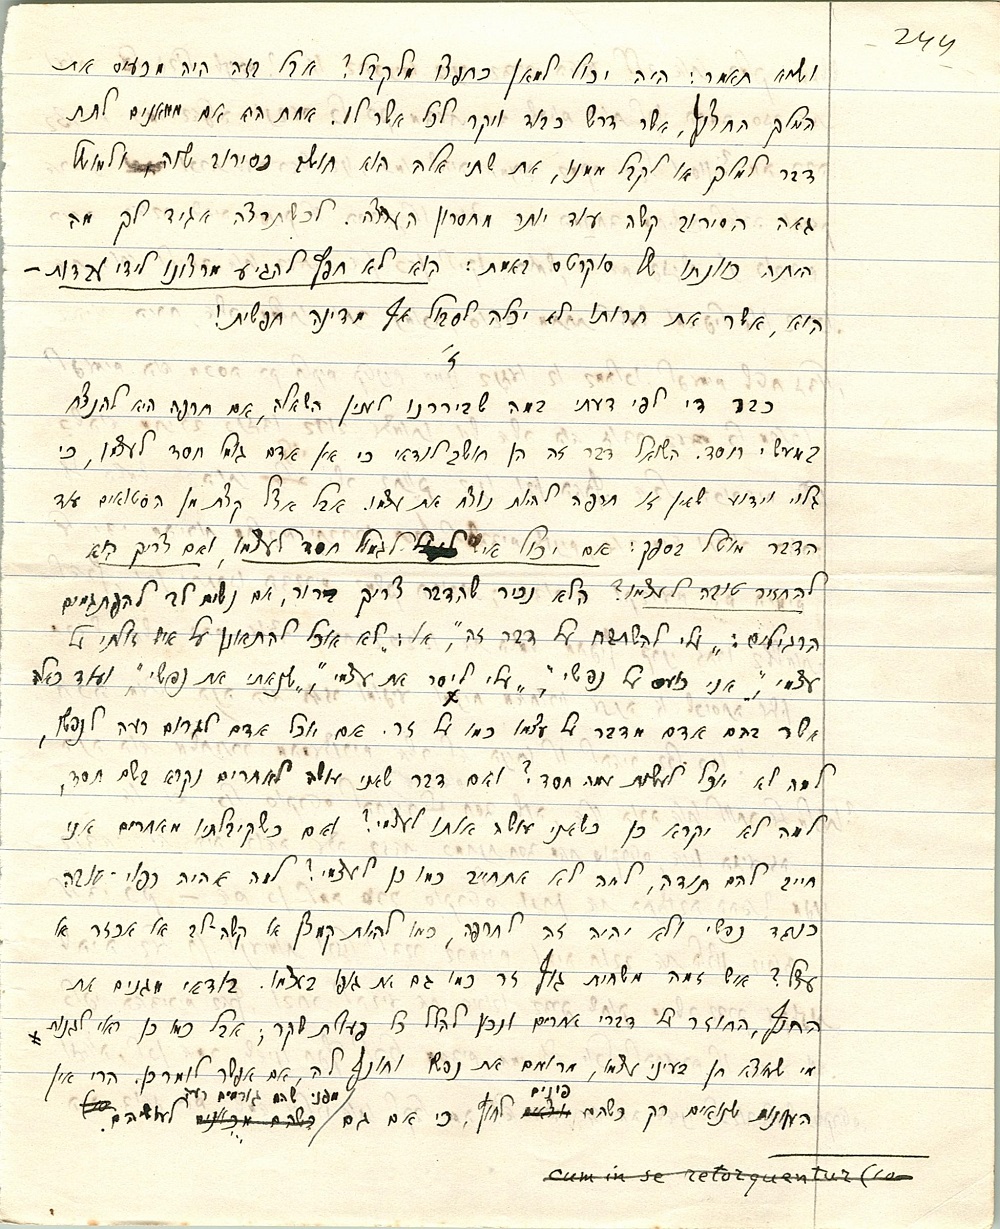 244
ושמא תאמר: היה יכול למאן כחפצו מלקבל? אבל בזה היה מכעיס את
המלך החצוף, אשר דרש כבוד ויקר לכל אשר לו. אחת היא אם ממאנים לתת
דבר למלך או לקבל ממנו, את שתי אלה הוא חושב כסירוב שוה, ולמושל
גאה הסירוב קשה עוד יותר מחסרון הערצה. לכשתרצה אגיד לך מה
היתה כונתו של סוקרטס באמת: הוא לא חפץ להגיע מרצונו לידי עבדות –
הוא, אשר את חרותו לא יכלה לסבול אף מדינה חפשית!
ז'
כבר די לפי דעתי במה שביררנו לענין השאלה, אם חרפה היא להנצח
במעשי חסד. השואל דבר זה הן חושב לודאי כי אין אדם גומל חסד לעצמו, כי
גלוי וידוע שאין זו חרפה להיות נוצח את עצמו. אבל אצל קצת מן הסטואים עוד
הדבר מוטל בספק: אם יכול איש לגמול חסד לעצמו, ואם צריך הוא
להחזיר טובה לעצמו? הלא נכיר שהדבר צריך ברור, אם נשים לב להפתגמים
הרגילים: "עלי להשתבח על דבר זה", או: "לא אוכל להתאונן על איש זולתי על
עצמי", "אני כועס על נפשי", "עלי ליסר את עצמי", "שנאתי את נפשי", ועוד כאלה
אשר בהם אדם מדבר על עצמו כמו על זר. אם יוכל אדם לגרום רעה לנפשו,
למה לא יוכל לעשות עמה חסד? ואם דבר שאני עושה לאחרים נקרא בשם חסד,
למה לא יקרא כן כשאני עושה אותו לעצמי? ואם כשקיבלתיו מאחרים אני
חייב להם תודה, למה לא אתחייב כמו כן לעצמי? למה אהיה כפוי-טובה
כנגד נפשי ולא יהיה זה לחרפה, כמו להיות קמצן או קשה-לב או אכזר או
עצל? איש זמה משחית גוף זר כמו גם את גופו בעצמו. בודאי מגנים את
החנף, החוזר על דברי אחרים ונכון להלל כל פעולת שקר; אבל כמו כן ראוי לגנות
מי שמוצא חן בעיני עצמו, מרומם את נפשו וחונף לה, אם אפשר לומר כן. הרי אין
העוונות שנואים רק כשהם פונים לחוץ, כי אם גם מפני שהם גורמים רעה לעושיהם.
cum in se retorquentur (10